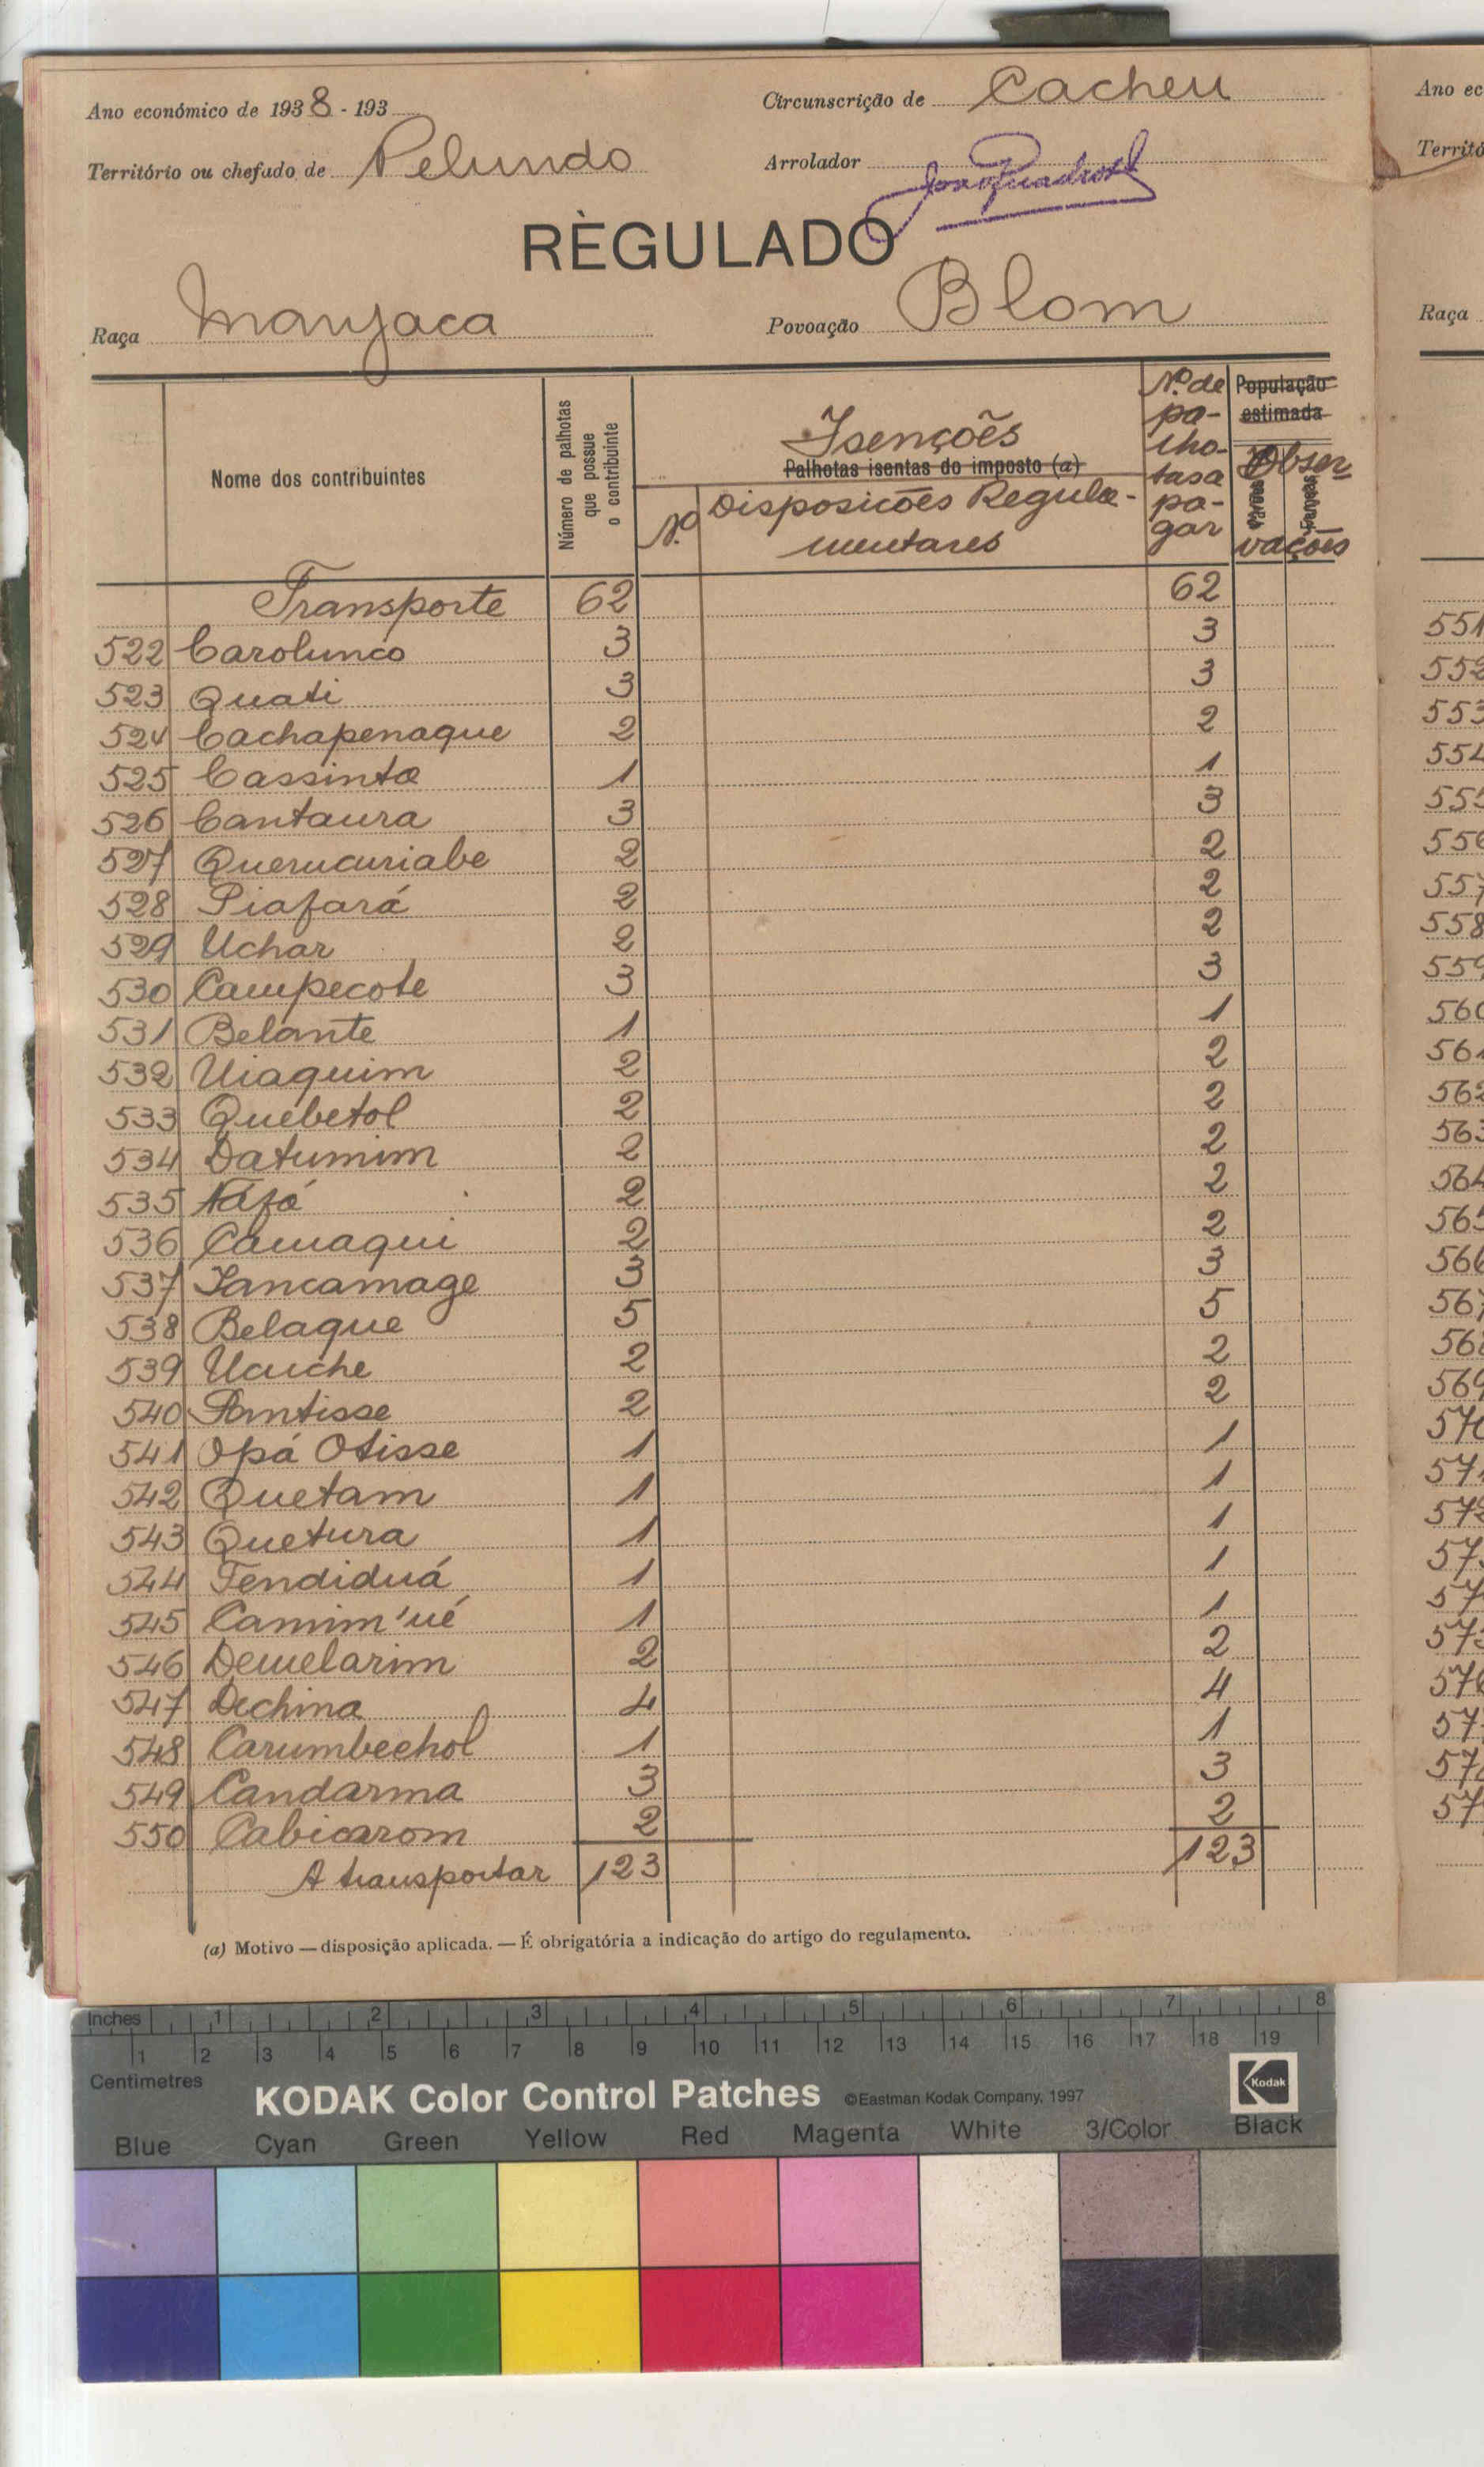 Ano económico de 1938 - 193
Circunscrição de Cacheu
Território ou chefado de Pelundo
Arrolador
RÈGULADO
Raça Manjaca
Povoação Blom
Nome dos contribuintes
Número de palhotas que possue o contribuinte
Isenções
Palhotas isentas do imposto (a)
Nº
Disposicões Regula-
mentares
Nº de
pa-
lho-
tas a
pa-
gar
População
estimada
Obser
vações
Transporte 62 62
522 Carolunco 3 3
523 Quati 3 3
524 Cachapenaque 2 2
525 Cassinta 1 1
526 Cantaura 3 3
527 Querucuriabe 2 2
528 Piafará 2 2
529 Uchar 2 2
530 Campecote 3 3
531 Belante 1 1
532 Uiaquim 2 2
533 Quebetol 2 2
534 Datumim 2 2
535 Náfá 2 2
536 Camaqui 2 2
537 Iancamage 3 3
538 Belaque 5 5
539 Uauche 2 2
540 Pomtisse 2 2
541 Opá Otisse 1 1
542 Quetam 1 1
543 Quetura 1 1
544 Tendiduá 1 1
545 Camim'ué 1 1
546 Demelarim 2 2
547 Dechina 4 4
548 Carumbechol 1 1
549 Candarma 3 3
550 Cabicarom 2 2
A transportar 123 123
(a) Motivo — disposição aplicada. — É obrigatória a indicação do artigo do regulamento.
Ano ec
Territó
Raça
Inches 1 2 3 4 5 6 7 8
1 2 3 4 5 6 7 8 9 10 11 12 13 14 15 16 17 18 19
Centimetres
KODAK Color Control Patches ©Eastman Kodak Company, 1997
Kodak
Blue Cyan Green Yellow Red Magenta White 3/Color Black